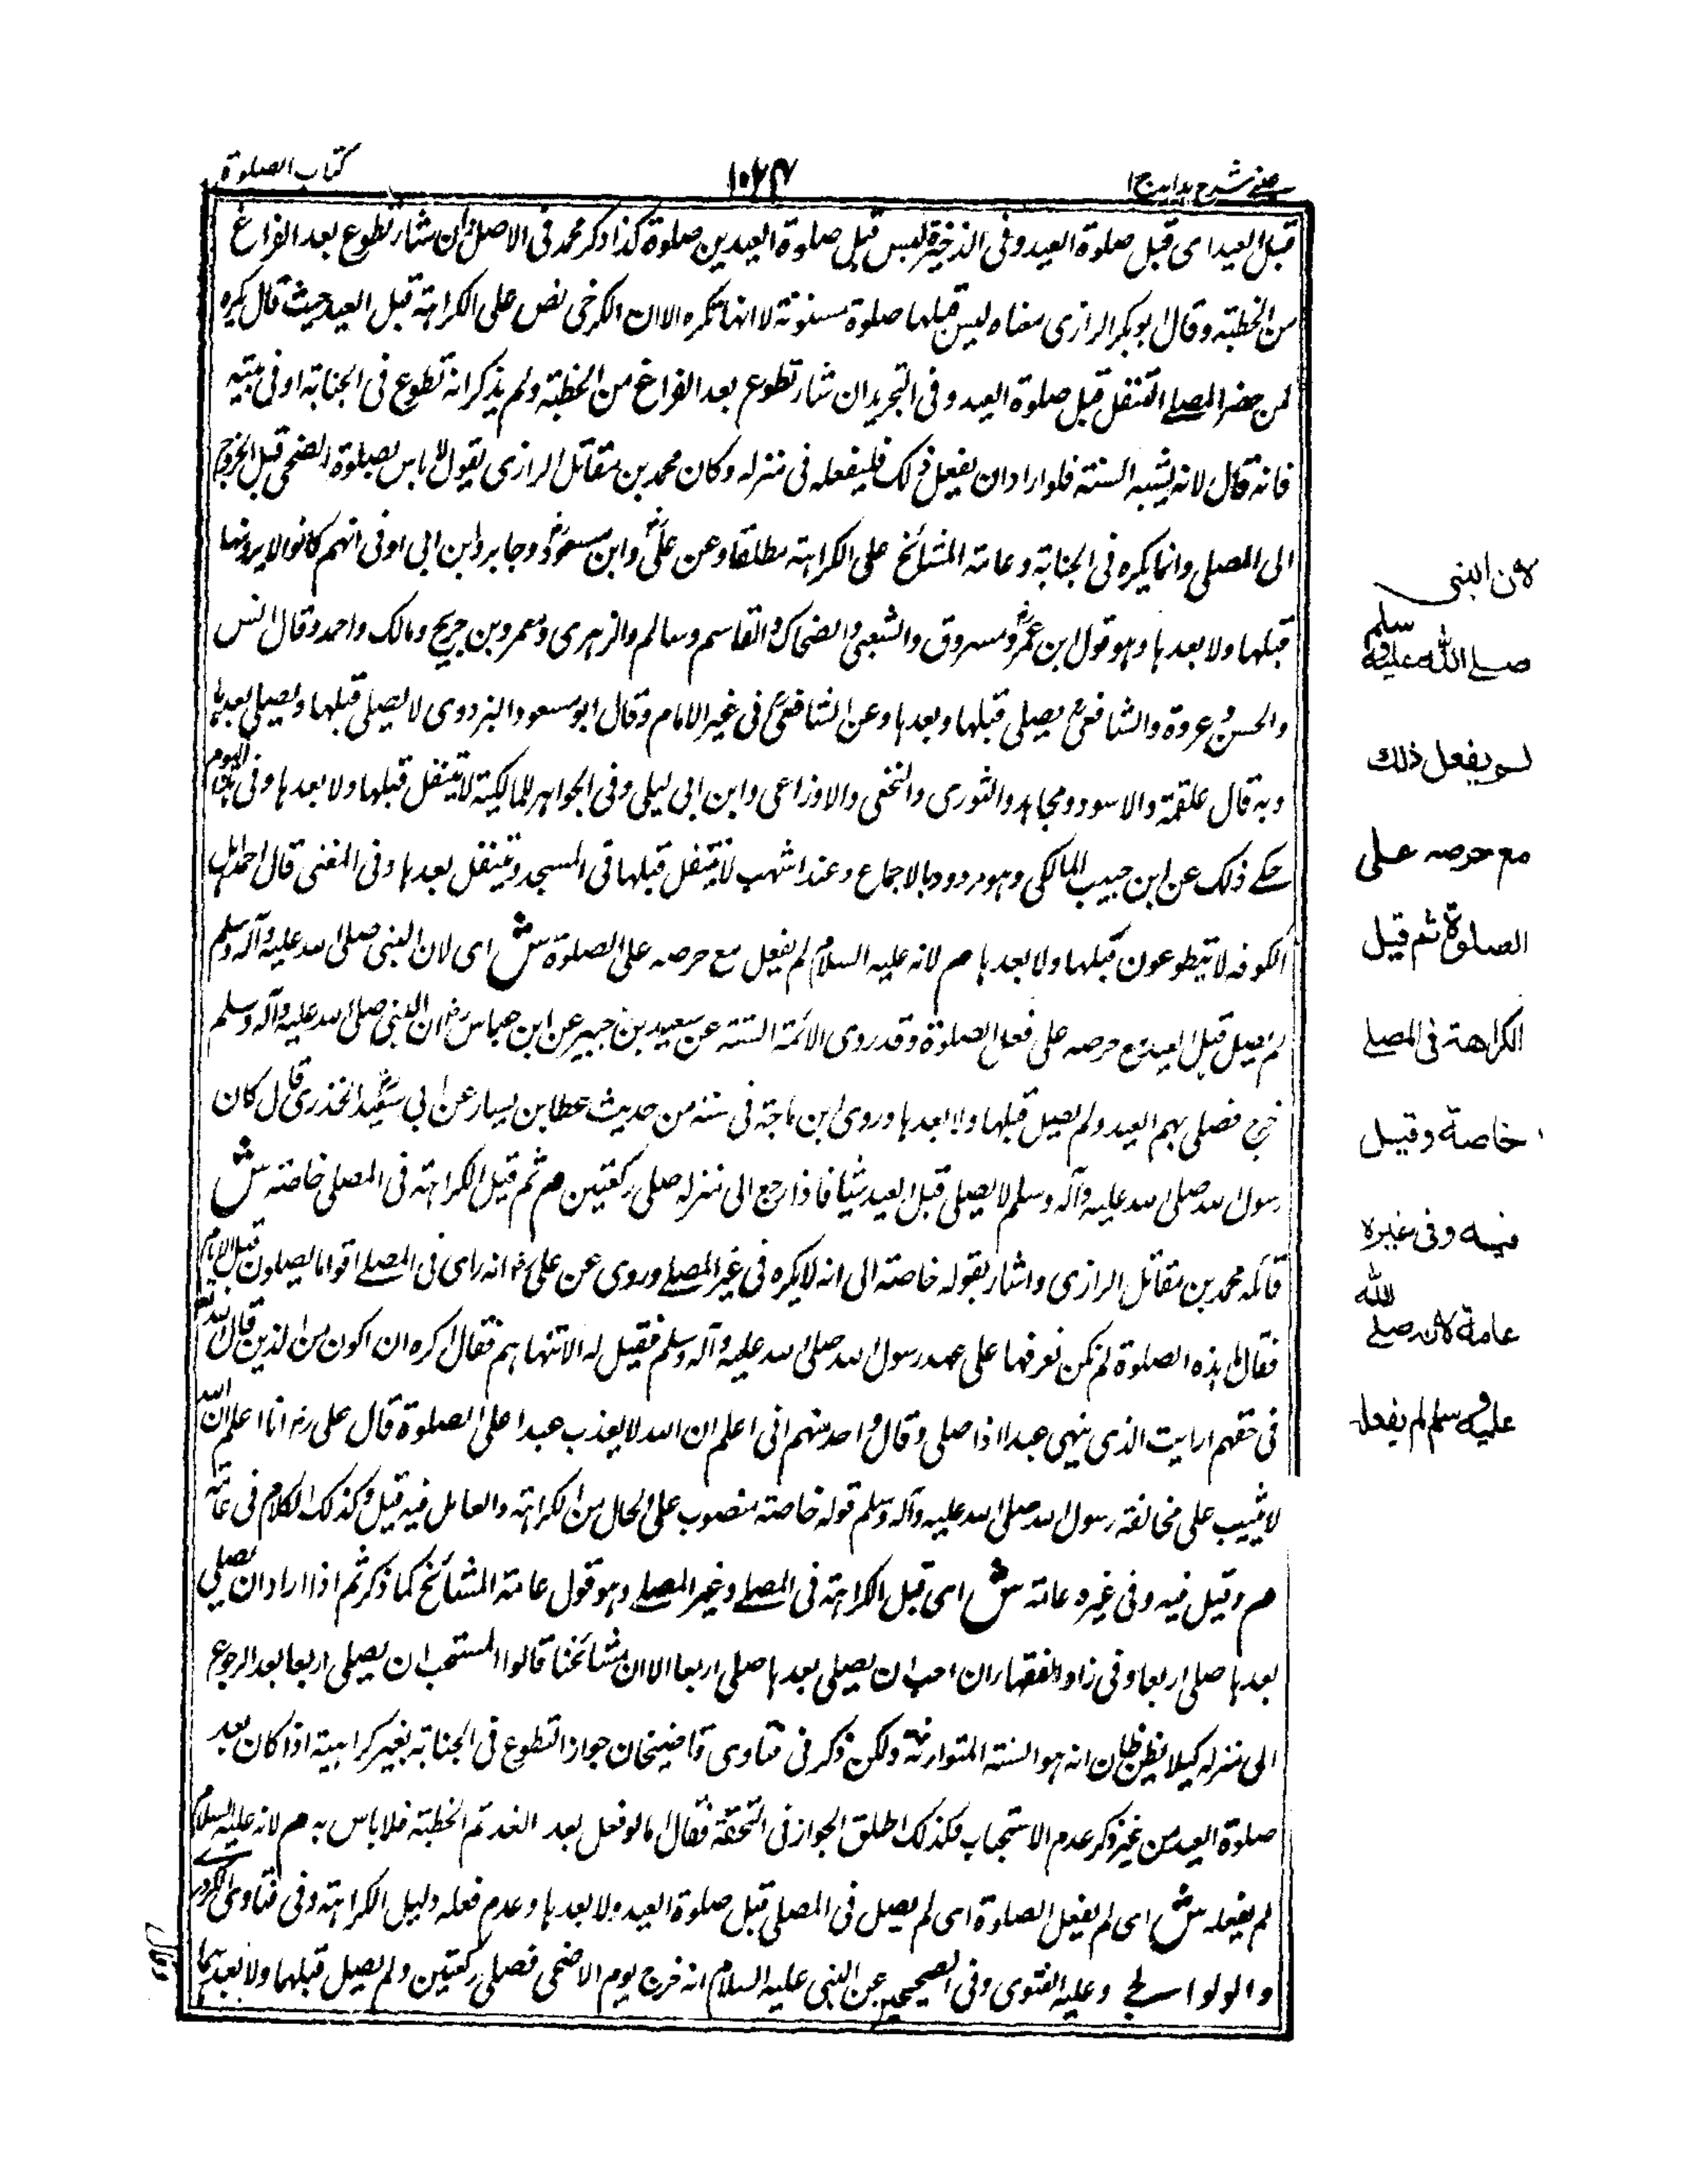 عينى شرح بداية ج١
١٠٢٤
كتاب الصلوة
قبل العيد اى قبل صلوة العيد وفى الذخيرة ليس قبل صلوة العيدين صلوة كذا ذكر محمد فى الاصل وان شار تطوع بعد الفراغ
من الخطبة وقال ابو بكر الرازى معناه ليس قبلها صلوة مسنونة لا انها تكره الا ان الكرخى نص على الكراهة قبل العيد حيث قال يكره
لمن حضر المصلے التنفل قبل صلوة العيد وفى التجريد ان شار تطوع بعد الفراغ من الخطبة ولم يذكر انه تطوع فى الجنابة او فى بيته
فانه قال لانه يشبه السنة فلو اراد ان يفعل ذلك فليفعله فى منزله وكان محمد بن مقاتل الرازى يقول لا باس بصلوة الضحى قبل الخروج
الى المصلى وانما يكره فى الجنابة وعامة المشائخ على الكراهة مطلقا وعن على وابن مسعود وجابر وابن ابى اوفى انهم كانوا لا يرونها
قبلها ولا بعدها وهو قول ابن عمر ومسروق والشعبى والضحاك والقاسم وسالم والزهرى ومعمر وبن جريج ومالك واحمد وقال انس
والحسن وعروة والشافعى يصلى قبلها وبعدها وعن الشافعى فى غير الامام وقال ابو مسعود البزدوى لا يصلى قبلها ويصلى بعدها
وبه قال علقمة والاسود ومجاهد والثورى والنخعى والاوزاعى وابن ابى ليلى وفى الجواهر للمالكية لا يتنفل قبلها ولا بعدها وفى اليوم
حكے ذلك عن ابن حبيب المالكى وهو مردود بالاجماع وعند اشهب لا يتنفل قبلها فى المسجد ويتنفل بعدها وفى المغنى قال احمد اهل
الكوفه لا يتطوعون قبلها ولا بعدها م لانه عليه السلام لم يفعل مع حرصه على الصلوة ش اى لان النبى صلى الله عليه وآله وسلم
لم يصل قبل العيد مع حرصه على فعل الصلوة وقد روى الائمة الستة عن سعيد بن جبير عن ابن عباس رض ان النبى صلى الله عليه وآله وسلم
خرج فصلى بهم العيد ولم يصل قبلها ولا بعدها وروى ابن ماجة فى سننه من حديث عطا بن يسار عن ابى سعيد الخدرى قال كان
رسول الله صلى الله عليه وآله وسلم لا يصلى قبل العيد شيا فاذا رجع الى منزله صلى ركعتين م ثم قيل الكراهة فى المصلى خاصة ش
قائله محمد بن مقاتل الرازى واشار بقوله خاصة الى انه لا يكره فى غير المصلے وروى عن على رض انه راى فى المصلے اقواما يصلون قبل الامام
فقال ما هذه الصلوة لم نكن نعرفها على عهد رسول الله صلى الله عليه وآله وسلم فقيل له الا تنهاهم فقال اكره ان اكون من الذين قال الله تع
فى حقهم ارايت الذى ينهى عبدا اذا صلى وقال واحد منهم انى اعلم ان الله لا يعذب عبدا على الصلوة قال على رض انا اعلم ان الله
لا يثيب على مخالفة رسول الله صلى الله عليه وآله وسلم قوله خاصة منصوب على الحال من الكراهة والعامل فيه قيل وكذلك الكلام فى عامة
م وقيل فيه وفى غيره عامة ش اى قيل الكراهة فى المصلے وغير المصلے وهو قول عامة المشائخ كما ذكر ثم اذا اراد ان يصلى
بعدها صلى اربعا وفى زاد الفقهار ان احب ان يصلى بعدها صلى اربعا الا ان مشائخنا قالوا المستحب ان يصلى اربعا بعد الرجوع
الى منزله كيلا يظن ظان انه هو السنة المتوارثة ولكن ذكر فى فتاوى قاضيخان جواز التطوع فى الجنابة بغير كراهية اذا كان بعد
صلوة العيد من غير ذكر عدم الاستحباب فكذلك اطلق الجواز فى التحفة فقال ما لو فعل بعد الخطبة فلا باس به م لانه عليه السلام
لم يفعله ش اى لم يفعل الصلوة اى لم يصل فى المصلى قبل صلوة العيد ولا بعدها وعدم فعله دليل الكراهة وفى فتاوى
والولوالجے وعليه الفتوى وفى الصحيح عن النبى عليه السلام انه خرج يوم الاضحى فصلى ركعتين ولم يصل قبلهما ولا بعدهما
لان النبى
صلے الله عليه وسلم
لم يفعل ذلك
مع حرصه على
الصلوة ثم قيل
الكراهة فى المصلے
خاصة وقيل
فيه وفى غيره
عامة لانه صلے الله
عليه وسلم لم يفعله